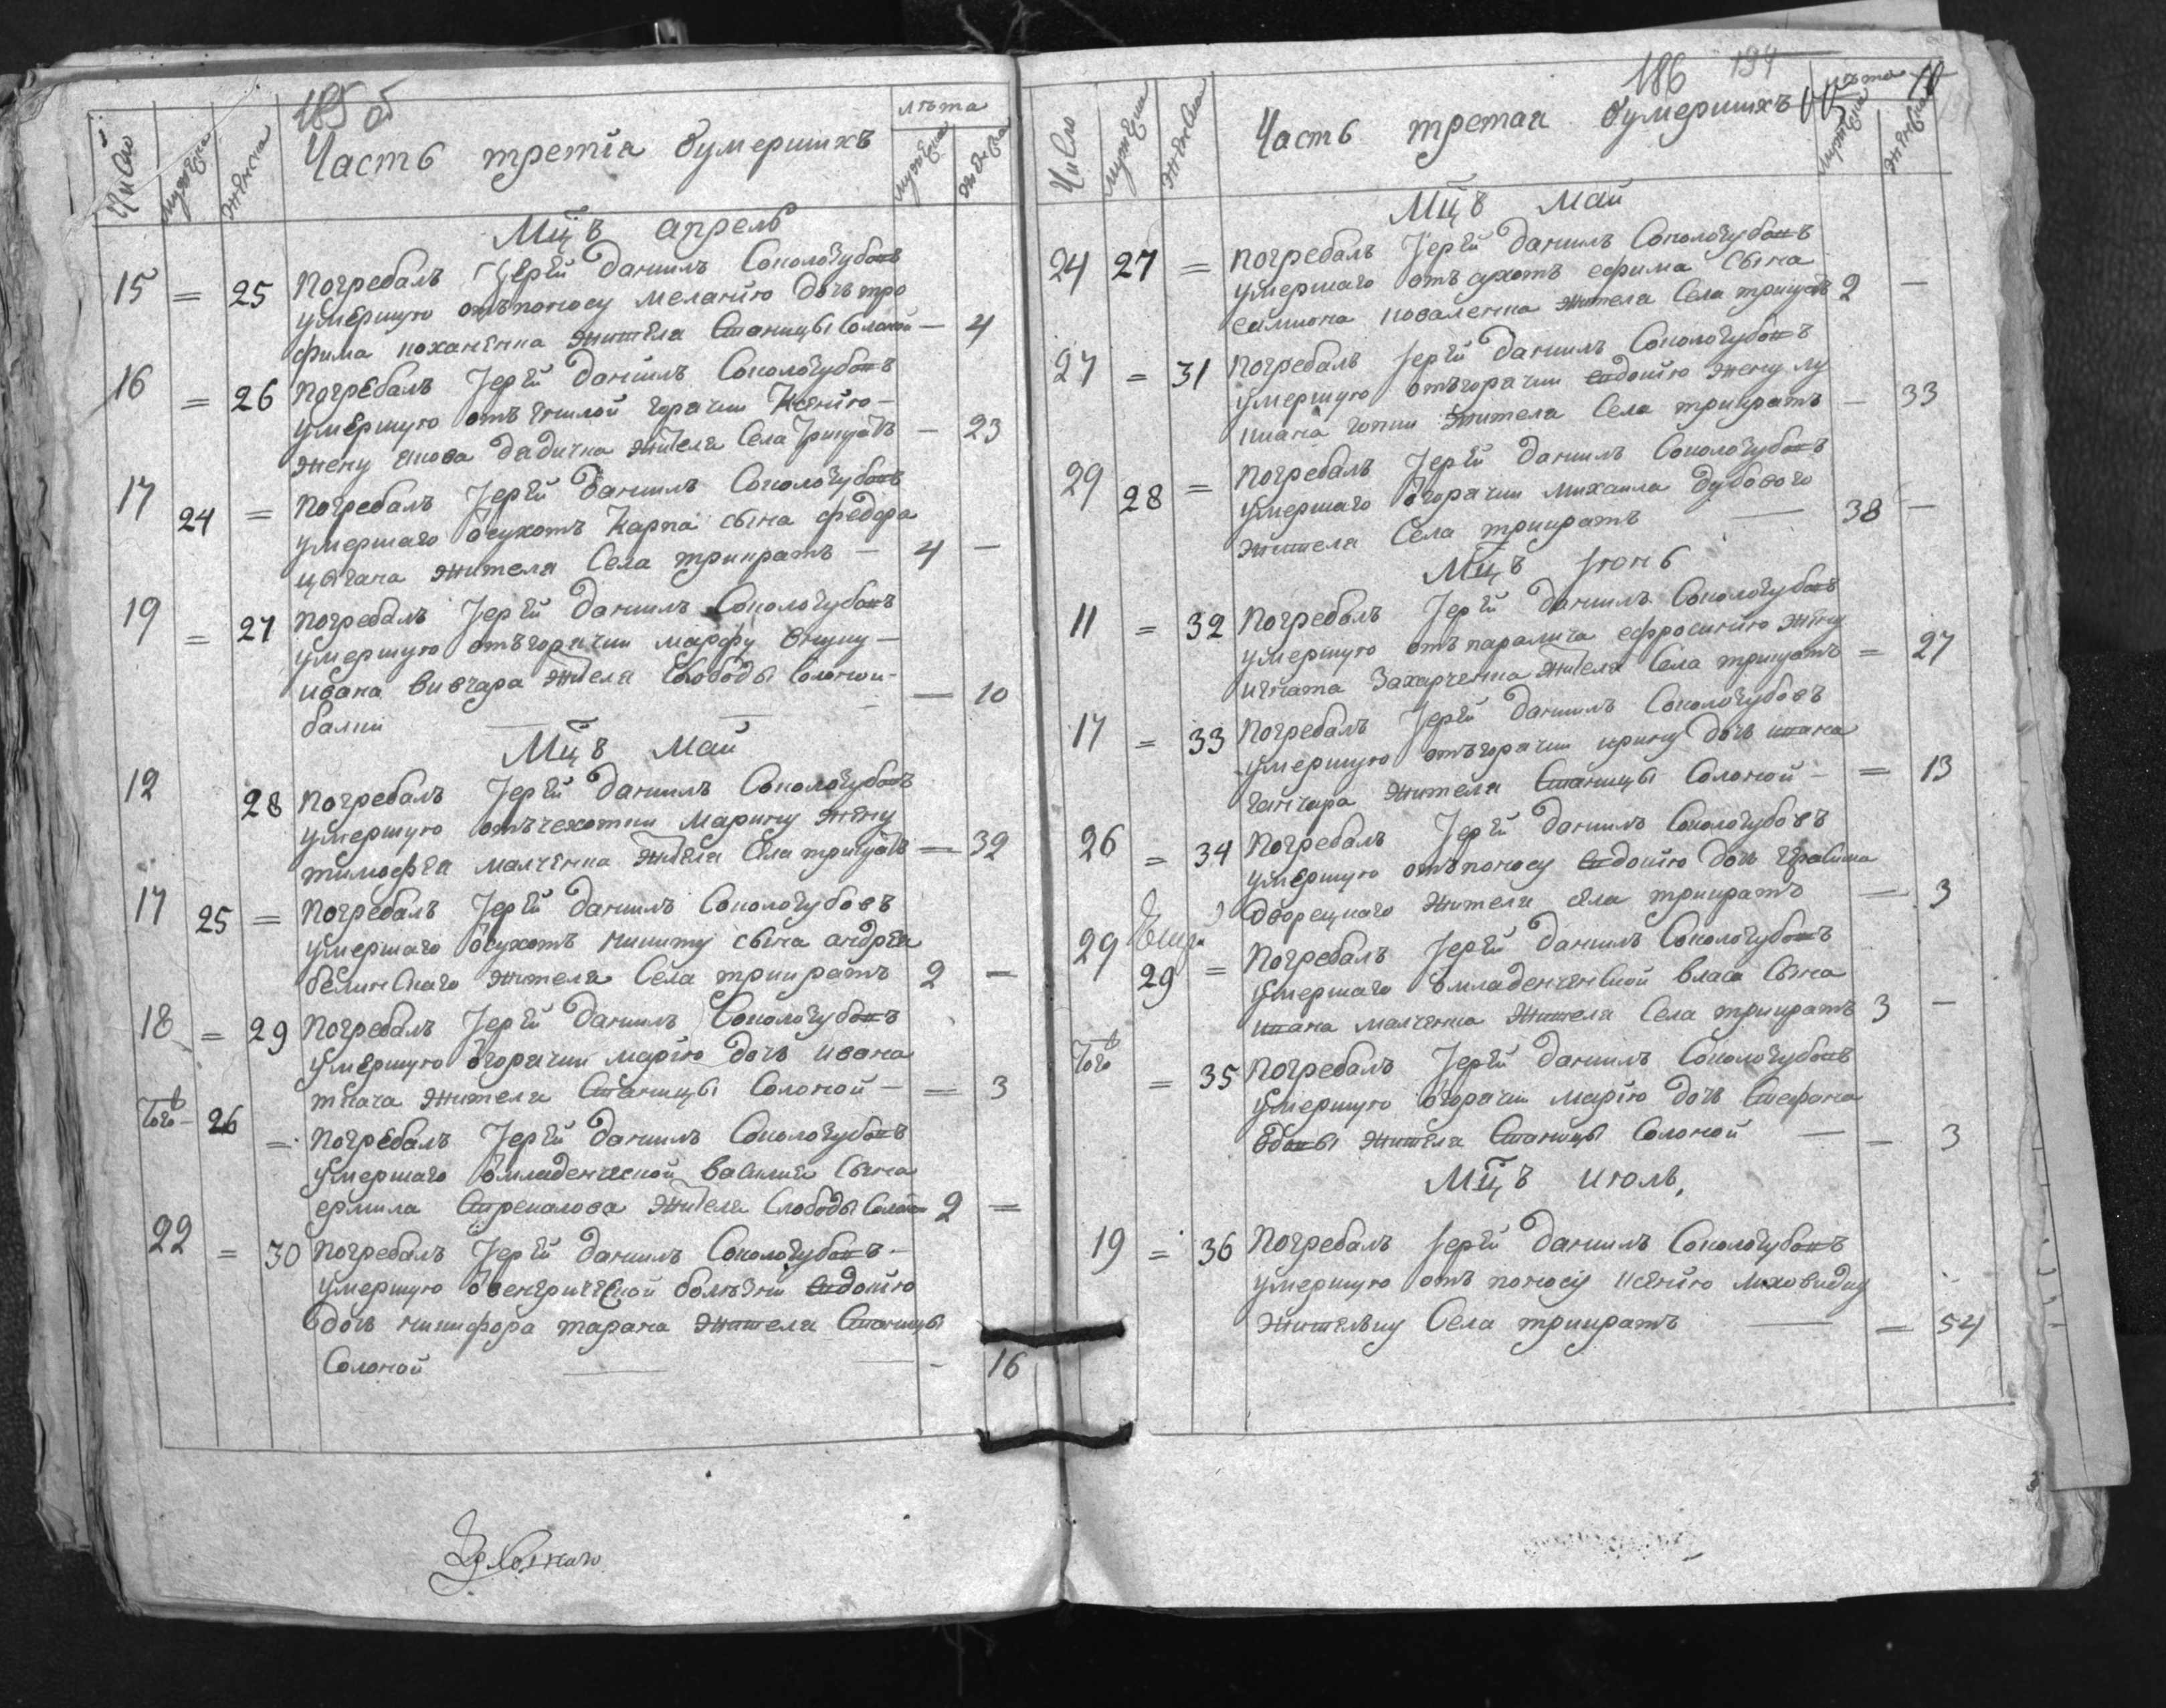 185 об
Число мужеска женска Часть третiа оумершихъ лѣта мужеска женска
Мцъ апрель
15 = 25 Погребалъ Iерей Данiилъ Сокологубовъ
умершую отъ поносу меланiю дочь тро
фима коханенка жителя Станицы Солоной — 4
16 = 26 Погребалъ Iерей Данiилъ Сокологубовъ
умершую отъ гнилой горачки Ксенiю —
жену якова дадичка жителя Села Трикратъ — 23
17 24 = Погребалъ Iерей Данiилъ Сокологубовъ
умершаго ѿ сухотъ Карпа сына федора
цыгана жителя Села трикратъ — 4 —
19 = 27 Погребалъ Iерей Данiилъ Сокологубовъ
умершую отъ горачки марфу внуку —
ивана вивчара жителя Слободы Солонои-
балки — — 10
Мцъ Маи
12 28 Погребалъ Iерей Данiилъ Сокологубовъ
умершую отъ чехотки Марину жену
тимофея малченка жителя Села трикратъ — 32
17 25 = Погребалъ Iерей Данiилъ Сокологубовъ
умершаго ѿ сухотъ никиту сына андрея
белинскаго жителя Села трикратъ 2 —
18 = 29 Погребалъ Iерей Данiилъ Сокологубовъ
умершую ѿ горачки марiю дочь ивана
ткача жителя Станицы Солоной — = 3
Тогѡ 26 = Погребалъ Iерей Данiилъ Сокологубовъ
умершаго ѿ младенческой василия Сына
ермила Стрекалова жителя Слободы Солоной 2 =
22 = 30 Погребалъ Iерей Данiилъ Сокологубовъ —
умершую ѿ венерической болѣзни Евдокiю
дочь никифора тарана жителя Станицы
Солоной — — 16
186 194
Число мужеска женска Часть третаи оумершихъ лѣта мужеска женска
Мцъ Маи
24 27 = Погребалъ Iерей Данiилъ Сокологубовъ
умершаго отъ сухотъ ефима Сына
симиона коваленка жителя Села трикратъ 2 —
27 = 31 Погребалъ Iерей Данiилъ Сокологубовъ
умершую отъ горачки Евдокiю жену лу
киана жителя Села трикратъ — 33
29 28 = Погребалъ Iерей Данiилъ Сокологубовъ
умершаго ѿ горачки михаила дубоваго
жителя Села трикратъ — 38 —
Мцъ Iюнь
11 = 32 Погребалъ Iерей Данiилъ Сокологубовъ
умершую отъ паралича ефросинiю жену
игната Захарченка жителя Села трикратъ = 27
17 = 33 Погребалъ Iерей Данiилъ Сокологубовъ
умершую отъ горачки ирину дочь ивана
ганчара жителя Станицы Солоной — = 13
26 = 34 Погребалъ Iерей Данiилъ Сокологубовъ
умершую отъ поносу Евдокiю дочь герасима
дворецкаго жителя села трикратъ — 3
29 29 = Погребалъ Iерей Данiилъ Сокологубовъ
умершаго ѿ младенческой власа Сына
ивана малченка жителя Села трикратъ 3 —
Тогѡ = 35 Погребалъ Iерей Данiилъ Сокологубовъ
умершую ѿ горачки марiю дочь Стефана
вдовы жителя Станицы Солоной — — 3
Мцъ июль
19 = 36 Погребалъ Iерей Данiилъ Сокологубовъ
умершую отъ поносу ксенiю
жителку Села трикратъ — = 54